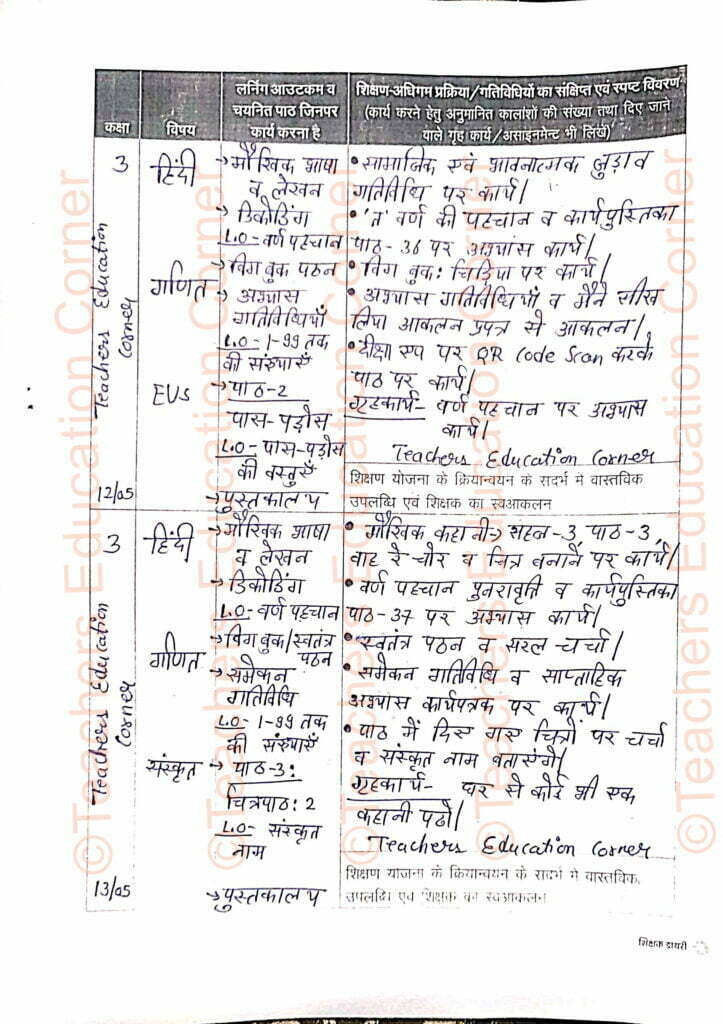 कक्षा
विषय
लर्निंग आउटकम व
चयनित पाठ जिनपर
कार्य करना है
शिक्षण-अधिगम प्रक्रिया/गतिविधियों का संक्षिप्त एवं स्पष्ट विवरण
(कार्य करने हेतु अनुमानित कालांशों की संख्या तथा दिए जाने
वाले गृह कार्य/असाइनमेन्ट भी लिखें)
3
हिंदी
→मौखिक भाषा
व लेखन
→ डिकोडिंग
L.O- वर्ण पहचान
गणित
→बिग बुक पठन
→ अभ्यास
गतिविधियाँ
L.O- 1-99 तक
की संख्याएँ
EVS
→ पाठ-2
पास-पड़ोस
L.O- पास-पड़ोस
की वस्तुएँ
→पुस्तकालय
12/05
Teachers Education
Corner
• सामाजिक एवं भावनात्मक जुड़ाव
गतिविधि पर कार्य।
• 'त' वर्ण की पहचान व कार्यपुस्तिका
पाठ-36 पर अभ्यास कार्य।
• बिग बुक: चिड़िया पर कार्य।
• अभ्यास गतिविधियाँ व मैंने सीख
लिया आकलन प्रपत्र से आकलन।
• दीक्षा एप पर QR Code Scan करके
पाठ पर कार्य।
गृहकार्य- वर्ण पहचान पर अभ्यास
कार्य।
Teachers Education Corner
शिक्षण योजना के क्रियान्वयन के सदर्भ मे वास्तविक
उपलब्धि एवं शिक्षक का स्वआकलन
3
हिंदी
→मौखिक भाषा
व लेखन
→ डिकोडिंग
L.O- वर्ण पहचान
→बिग बुक/स्वतंत्र
पठन
गणित
→ समेकन
गतिविधि
L.O- 1-99 तक
की संख्याएँ
संस्कृत
→ पाठ-3:
चित्रपाठ: 2
L.O- संस्कृत
नाम
→पुस्तकालय
13/05
Teachers Education
Corner
• मौखिक कहानी→ सहज-3, पाठ-3,
वाह रे चोर व चित्र बनाने पर कार्य।
• वर्ण पहचान पुनरावृति व कार्यपुस्तिका
पाठ-37 पर अभ्यास कार्य।
• स्वतंत्र पठन व सरल चर्चा।
• समेकन गतिविधि व साप्ताहिक
अभ्यास कार्यपत्रक पर कार्य।
• पाठ में दिए गए चित्रों पर चर्चा
व संस्कृत नाम बताएंगे।
गृहकार्य- घर से कोई भी एक
कहानी पढ़ो।
Teachers Education Corner
शिक्षण योजना के क्रियान्वयन के सदर्भ मे वास्तविक
उपलब्धि एवं शिक्षक का स्वआकलन
शिक्षक डायरी
©Teachers Education Corner
©Teachers Education Corner
©Teachers Education Corner
©Teachers Education Corner
©Teachers Education Corner